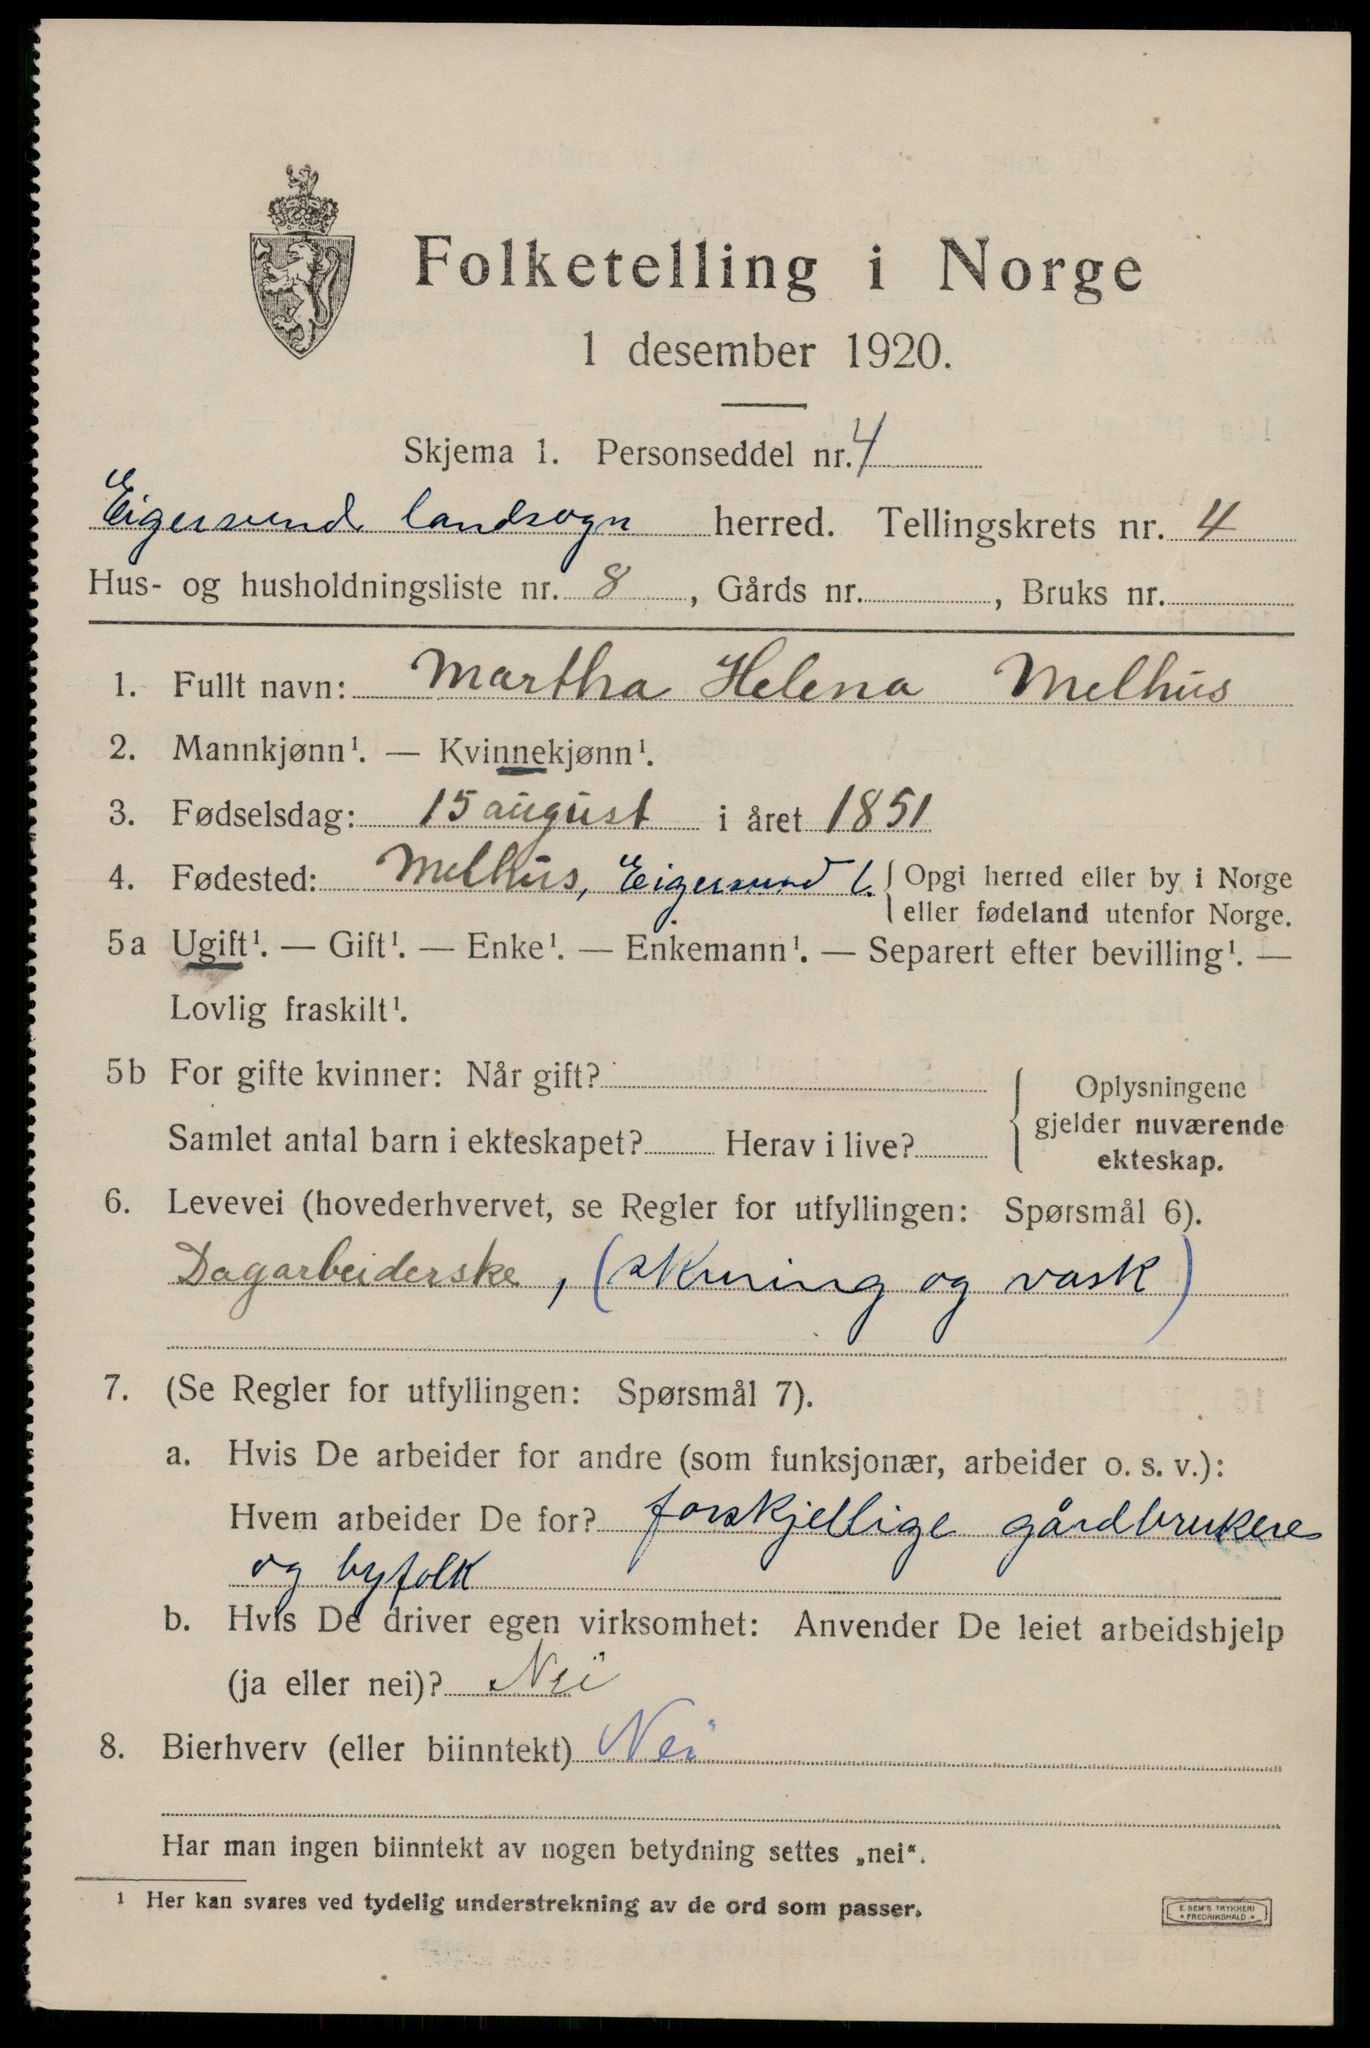 Folketelling i Norge
1 desember 1920.
Skjema 1. Personseddel nr. 4
Eigersund landsogn herred. Tellingskrets nr. 4
Hus- og husholdningsliste nr. 8, Gårds nr. , Bruks nr.
1. Fullt navn: Martha Helena Melhus
2. Mannkjønn¹. — Kvinnekjønn¹.
3. Fødselsdag: 15 august i året 1851
4. Fødested: Melhus, Eigersund l. Opgi herred eller by i Norge
eller fødeland utenfor Norge.
5a Ugift¹. — Gift¹. — Enke¹. — Enkemann¹. — Separert efter bevilling¹. —
Lovlig fraskilt¹.
5b For gifte kvinner: Når gift?
Samlet antal barn i ekteskapet? Herav i live?
Oplysningene
gjelder nuværende
ekteskap.
6. Levevei (hovederhvervet, se Regler for utfyllingen: Spørsmål 6).
Dagarbeiderske, (skuring og vask)
7. (Se Regler for utfyllingen: Spørsmål 7).
a. Hvis De arbeider for andre (som funksjonær, arbeider o. s. v.):
Hvem arbeider De for? forskjellige gårdbrukere
og byfolk
b. Hvis De driver egen virksomhet: Anvender De leiet arbeidshjelp
(ja eller nei)? Nei
8. Bierhverv (eller biinntekt) Nei
Har man ingen biinntekt av nogen betydning settes „nei“.
¹ Her kan svares ved tydelig understrekning av de ord som passer.
E. SEM'S TRYKKERI
FREDRIKSHALD